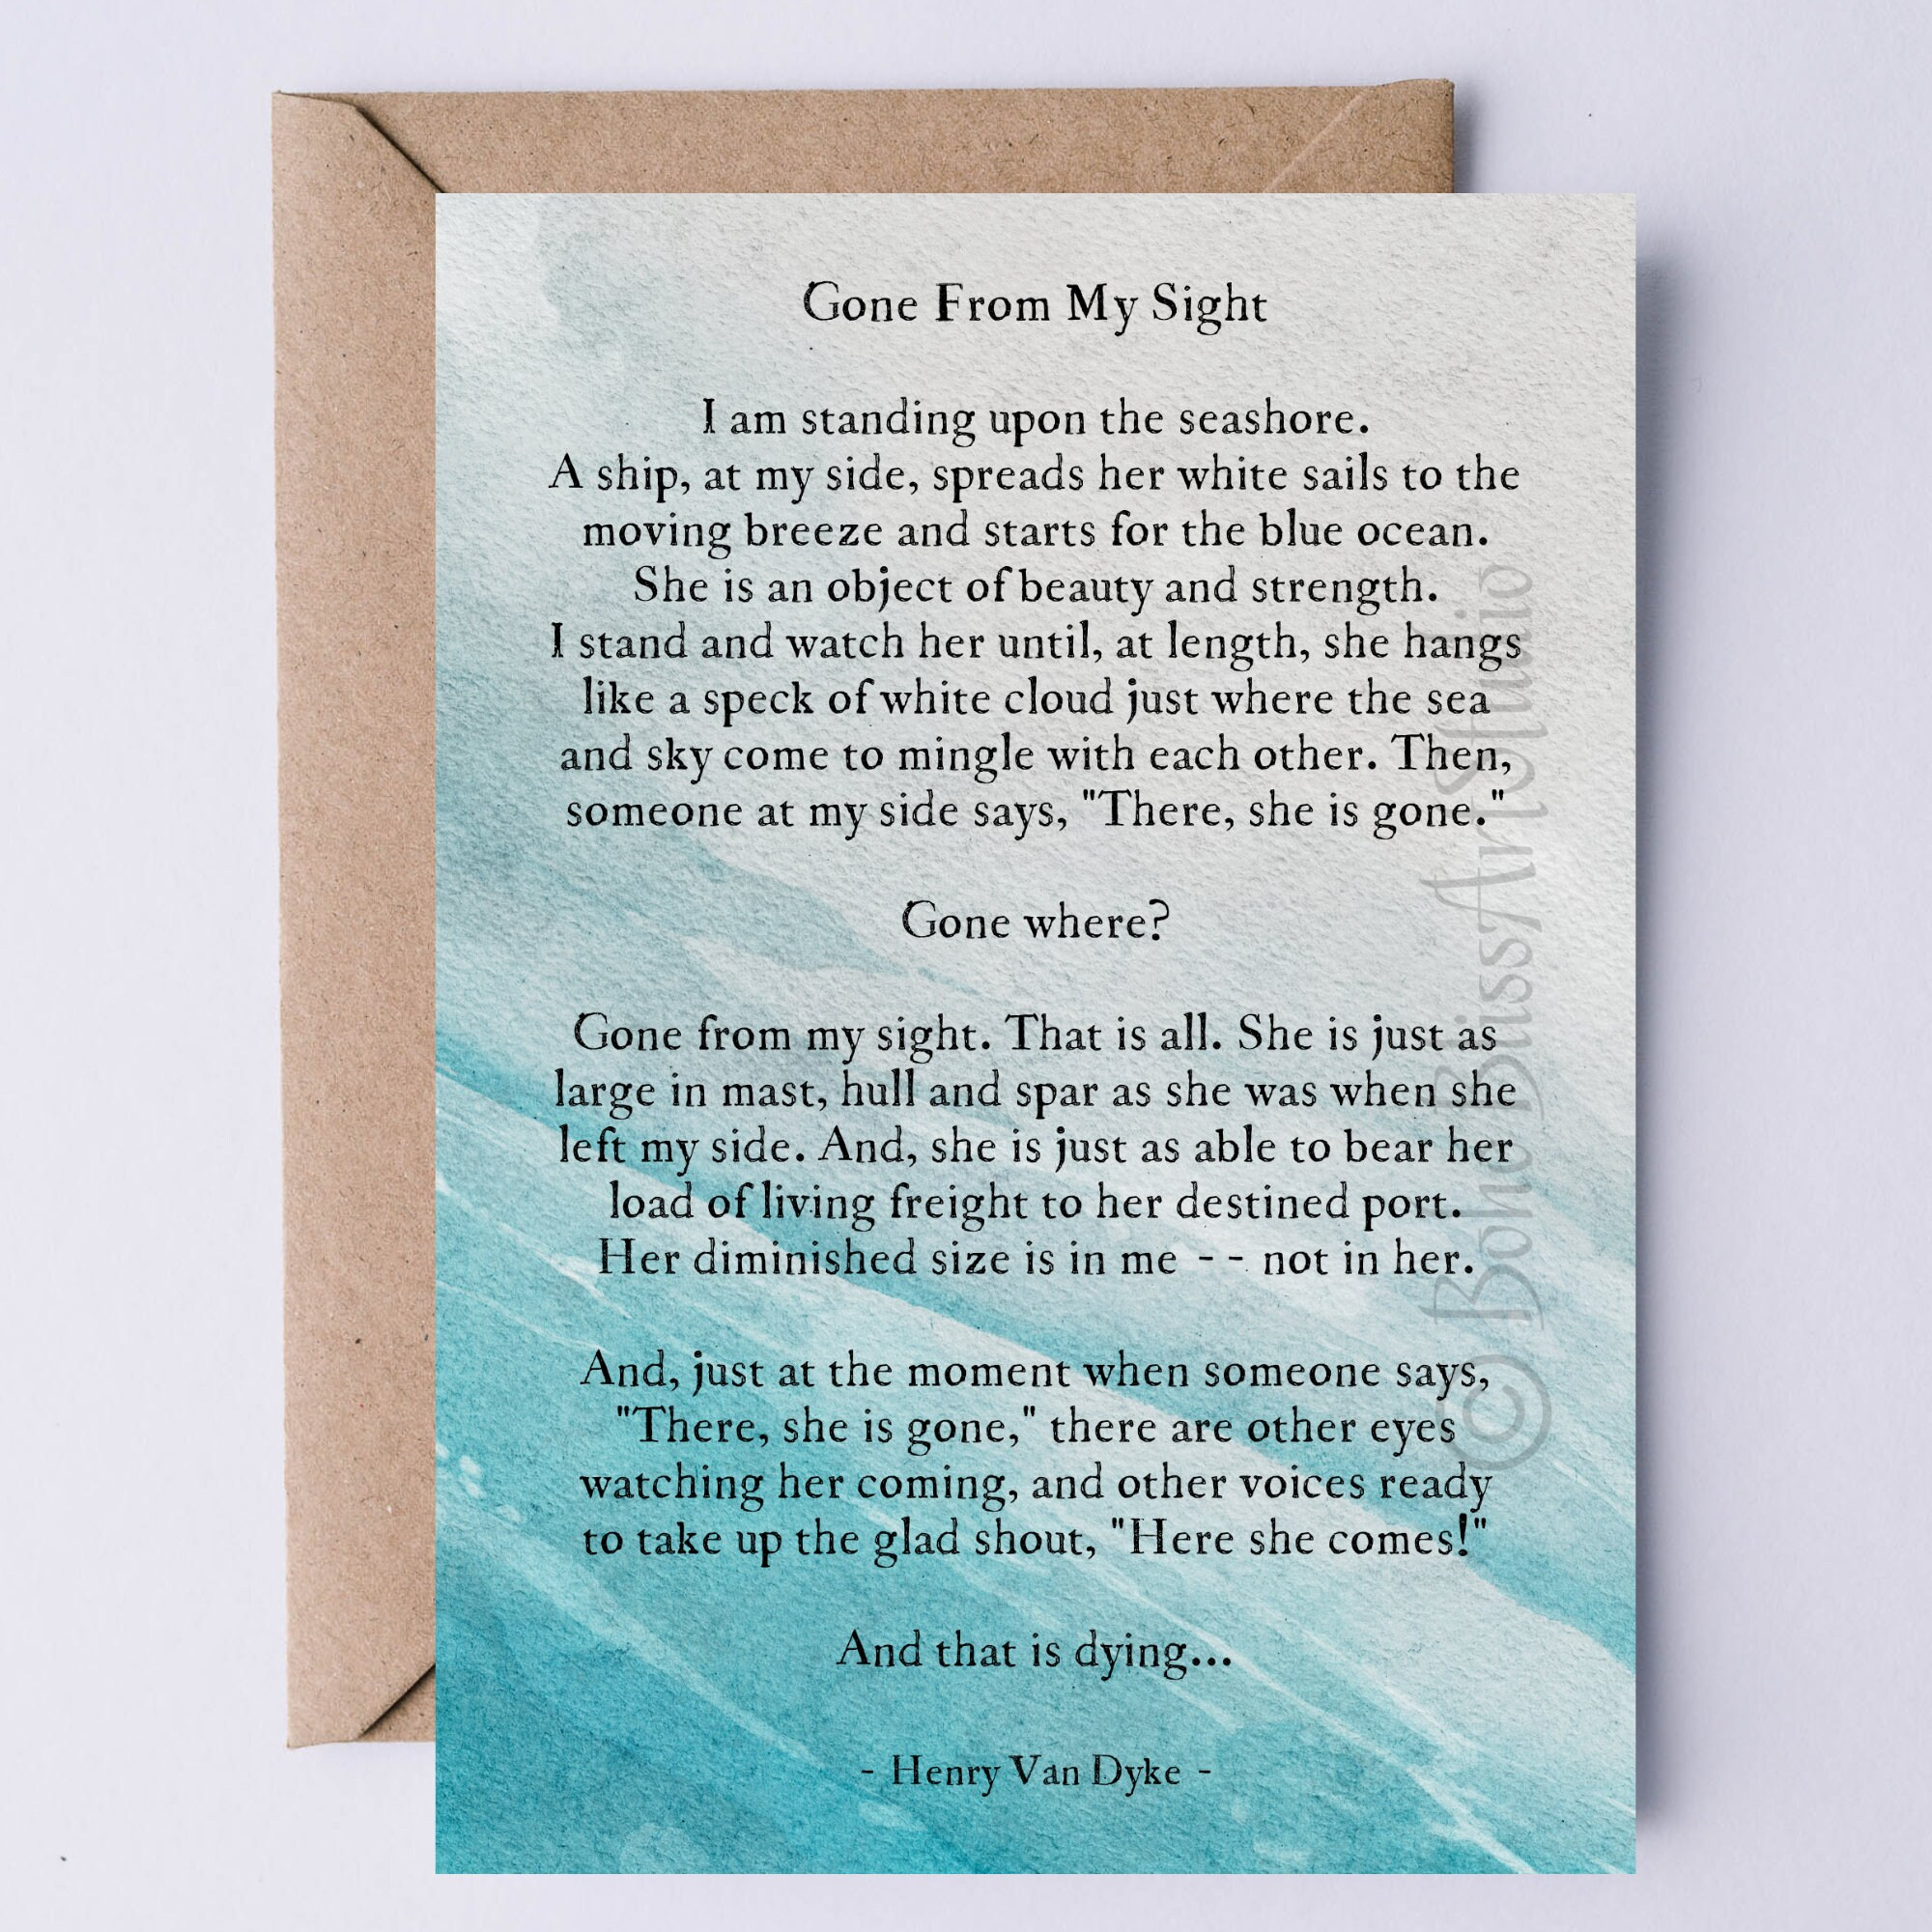 Gone From My Sight
I am standing upon the seashore.
A ship, at my side, spreads her white sails to the
moving breeze and starts for the blue ocean.
She is an object of beauty and strength.
I stand and watch her until, at length, she hangs
like a speck of white cloud just where the sea
and sky come to mingle with each other. Then,
someone at my side says, "There, she is gone."
Gone where?
Gone from my sight. That is all. She is just as
large in mast, hull and spar as she was when she
left my side. And, she is just as able to bear her
load of living freight to her destined port.
Her diminished size is in me -- not in her.
And, just at the moment when someone says,
"There, she is gone," there are other eyes
watching her coming, and other voices ready
to take up the glad shout, "Here she comes!"
And that is dying...
- Henry Van Dyke -
© Boho Bliss Art Studio